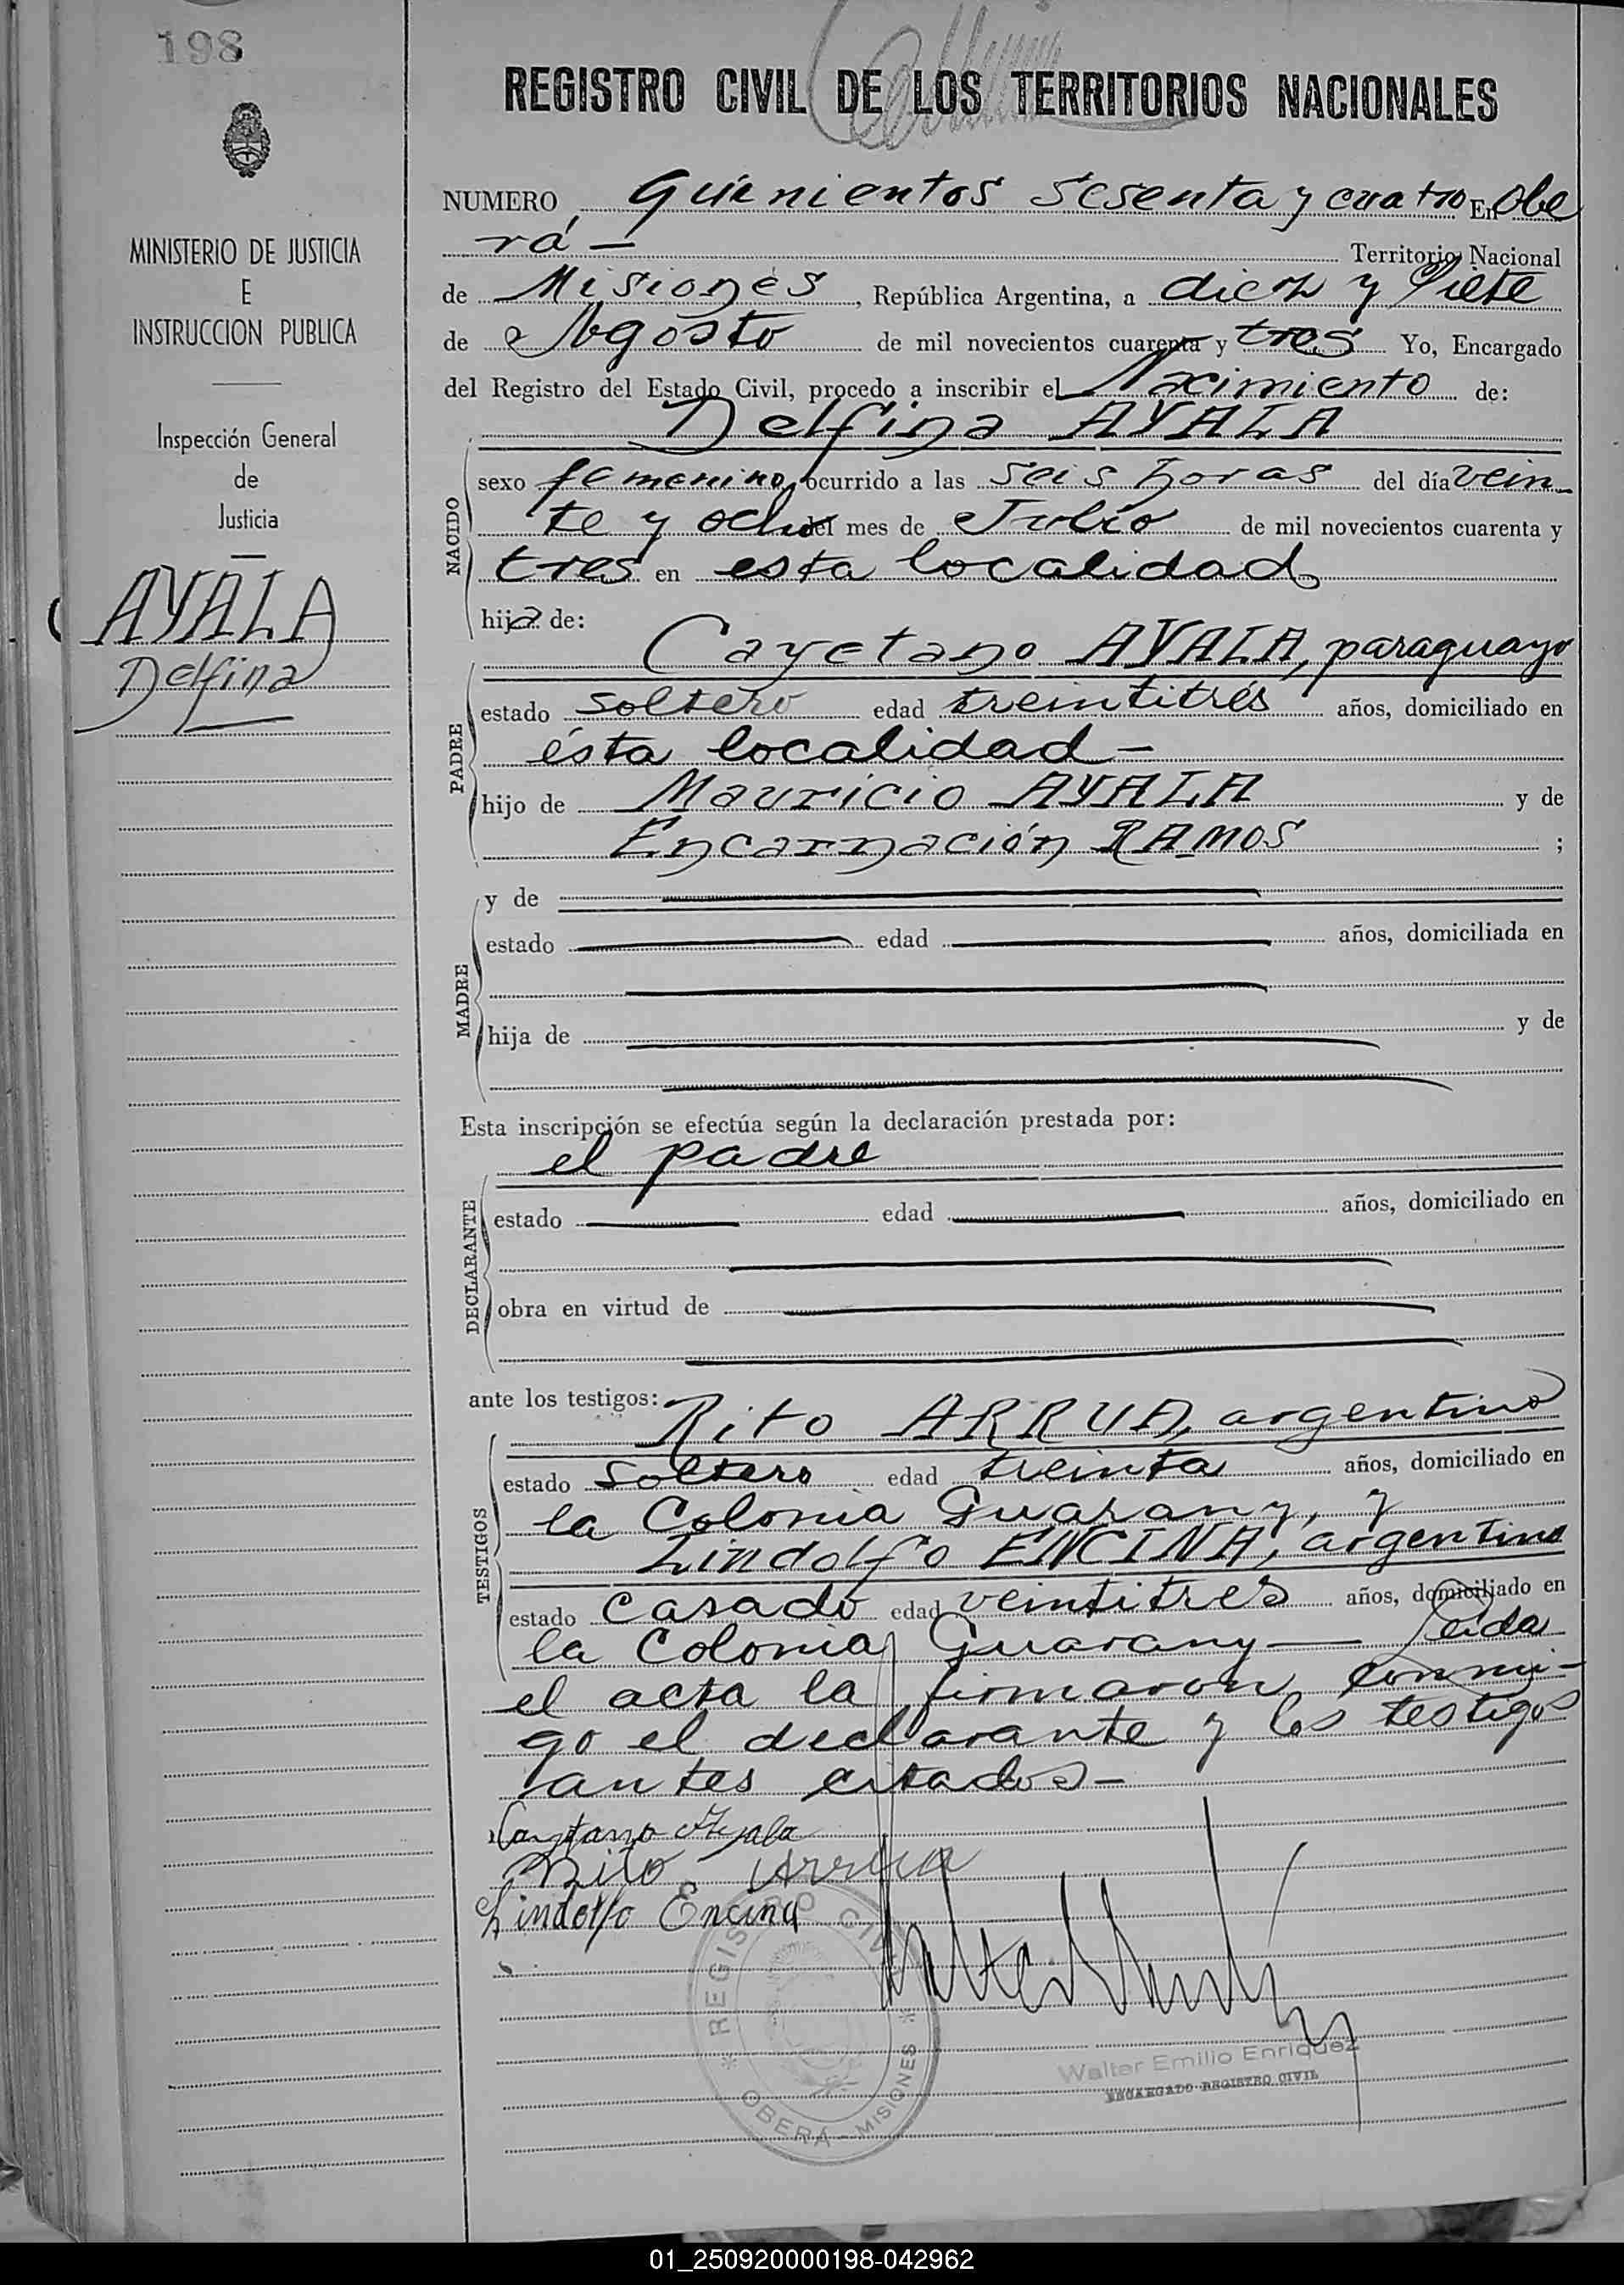 198
REGISTRO CIVIL DE LOS TERRITORIOS NACIONALES
MINISTERIO DE JUSTICIA
E
INSTRUCCION PUBLICA
Inspección General
de
Justicia
AYALA
Delfina
NUMERO Quinientos sesenta y cuatro En Obe
rá - Territorio Nacional
de Misiones, República Argentina, a diez y siete
de Agosto de mil novecientos cuarenta y tres Yo, Encargado
del Registro del Estado Civil, procedo a inscribir el Nacimiento de:
Delfina AYALA
NACIDO
sexo femenino, ocurrido a las seis horas del día vein-
te y ocho del mes de Julio de mil novecientos cuarenta y
tres en esta localidad
hija de:
Cayetano AYALA, paraguayo
PADRE
estado soltero edad treintitrés años, domiciliado en
ésta localidad -
hijo de Mauricio AYALA y de
Encarnación RAMOS ;
MADRE
y de
estado edad años, domiciliada en
hija de y de
Esta inscripción se efectúa según la declaración prestada por:
el padre
DECLARANTE
estado edad años, domiciliado en
obra en virtud de
ante los testigos:
Rito ARRUA, argentino
TESTIGOS
estado soltero edad treinta años, domiciliado en
la Colonia Guarany, y
Lindolfo ENCINA, argentino
estado casado edad veintitres años, domiciliado en
la Colonia Guarany — Leida
el acta la firmaron conmi-
go el declarante y los testigos
antes citados -
Cayetano Ayala
Rito Arrua
Lindolfo Encina
REGISTRO CIVIL
OBERÁ - MISIONES
Walter Emilio Enriquez
ENCARGADO REGISTRO CIVIL
01_250920000198-042962